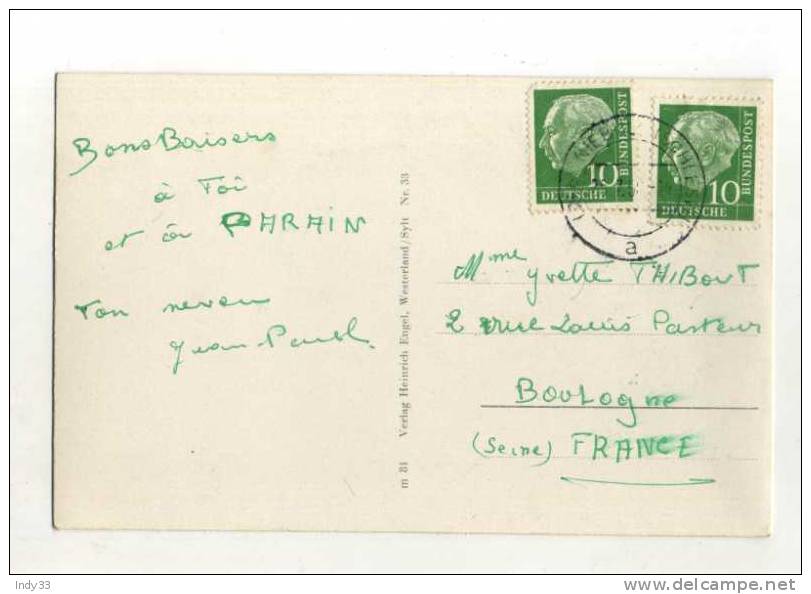 Bons Baisers
à Toi
et ou PARAIN
Ton neveu
Jean-Paul.
m 81 Verlag Heinrich Engel, Westerland/Sylt Nr. 33
10
DEUTSCHE
BUNDESPOST
10
DEUTSCHE
BUNDESPOST
a
Mme Yvette THIBOUT
2 rue Louis Pasteur
BouLogne
(Seine) FRANCE
Indy33
delcampe.net